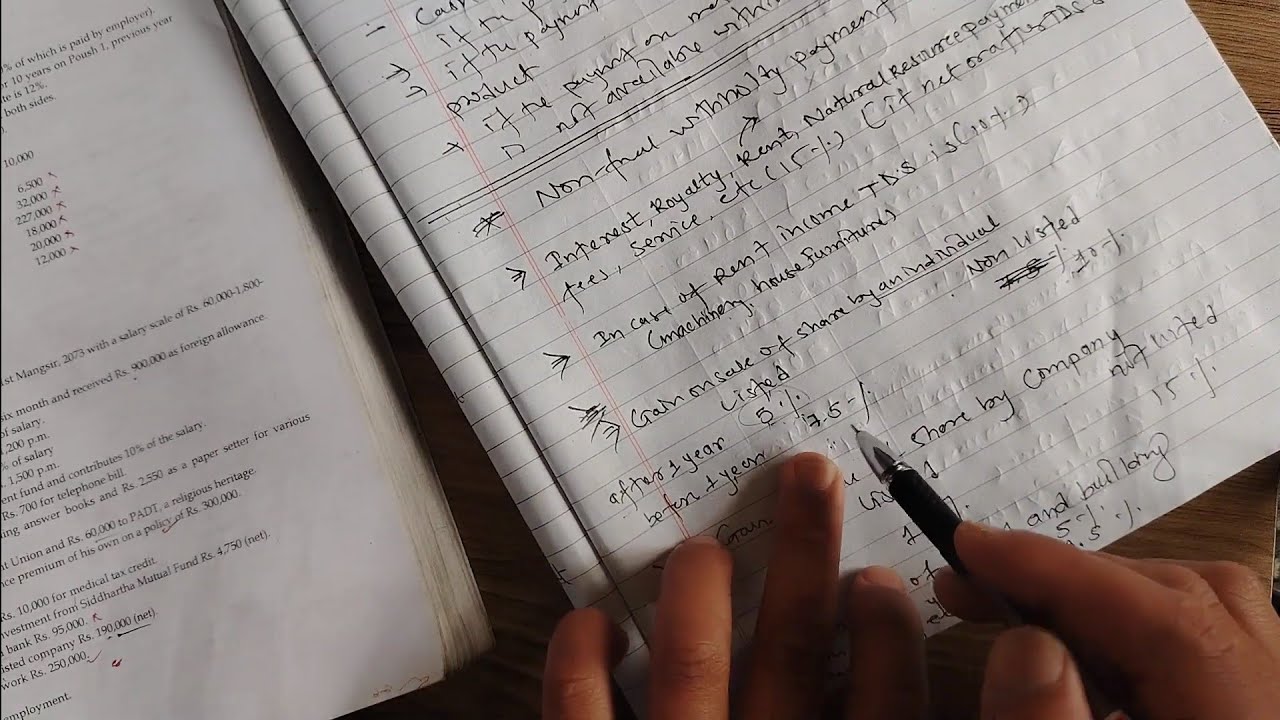 % of which is paid by employer).
r 10 years on Poush 1, previous year
te is 12%.
both sides.
10,000
6,500
32,000
227,000
18,000
20,000
12,000
1st Mangsir, 2073 with a salary scale of Rs. 60,000-1,800-
six month and received Rs. 900,000 as foreign allowance.
of salary.
1,200 p.m.
% of salary
1,500 p.m.
ent fund and contributes 10% of the salary.
Rs. 700 for telephone bill.
ing answer books and Rs. 2,550 as a paper setter for various
Union and Rs. 60,000 to PADT, a religious heritage.
ce premium of his own on a policy of Rs. 300,000.
Rs. 10,000 for medical tax credit.
nvestment from Siddhartha Mutual Fund Rs. 4,750 (net).
bank Rs. 95,000.
isted company Rs. 190,000 (net).
work Rs. 250,000.
employment.
if the
if the payment
product
if the payment on
not available within
Non-final withholding payment
Interest, Royalty, Rent, Natural Resource payment
fees, service, etc (15%) (if net or after TDS
In case of Rent income TDS is (10%)
(machinery, house furnitures)
Gain on sale of share by an individual
Listed Non listed
after 1 year 5% 10%
before 1 year 7.5%
Gain share by company
not listed
15%
and building
5%